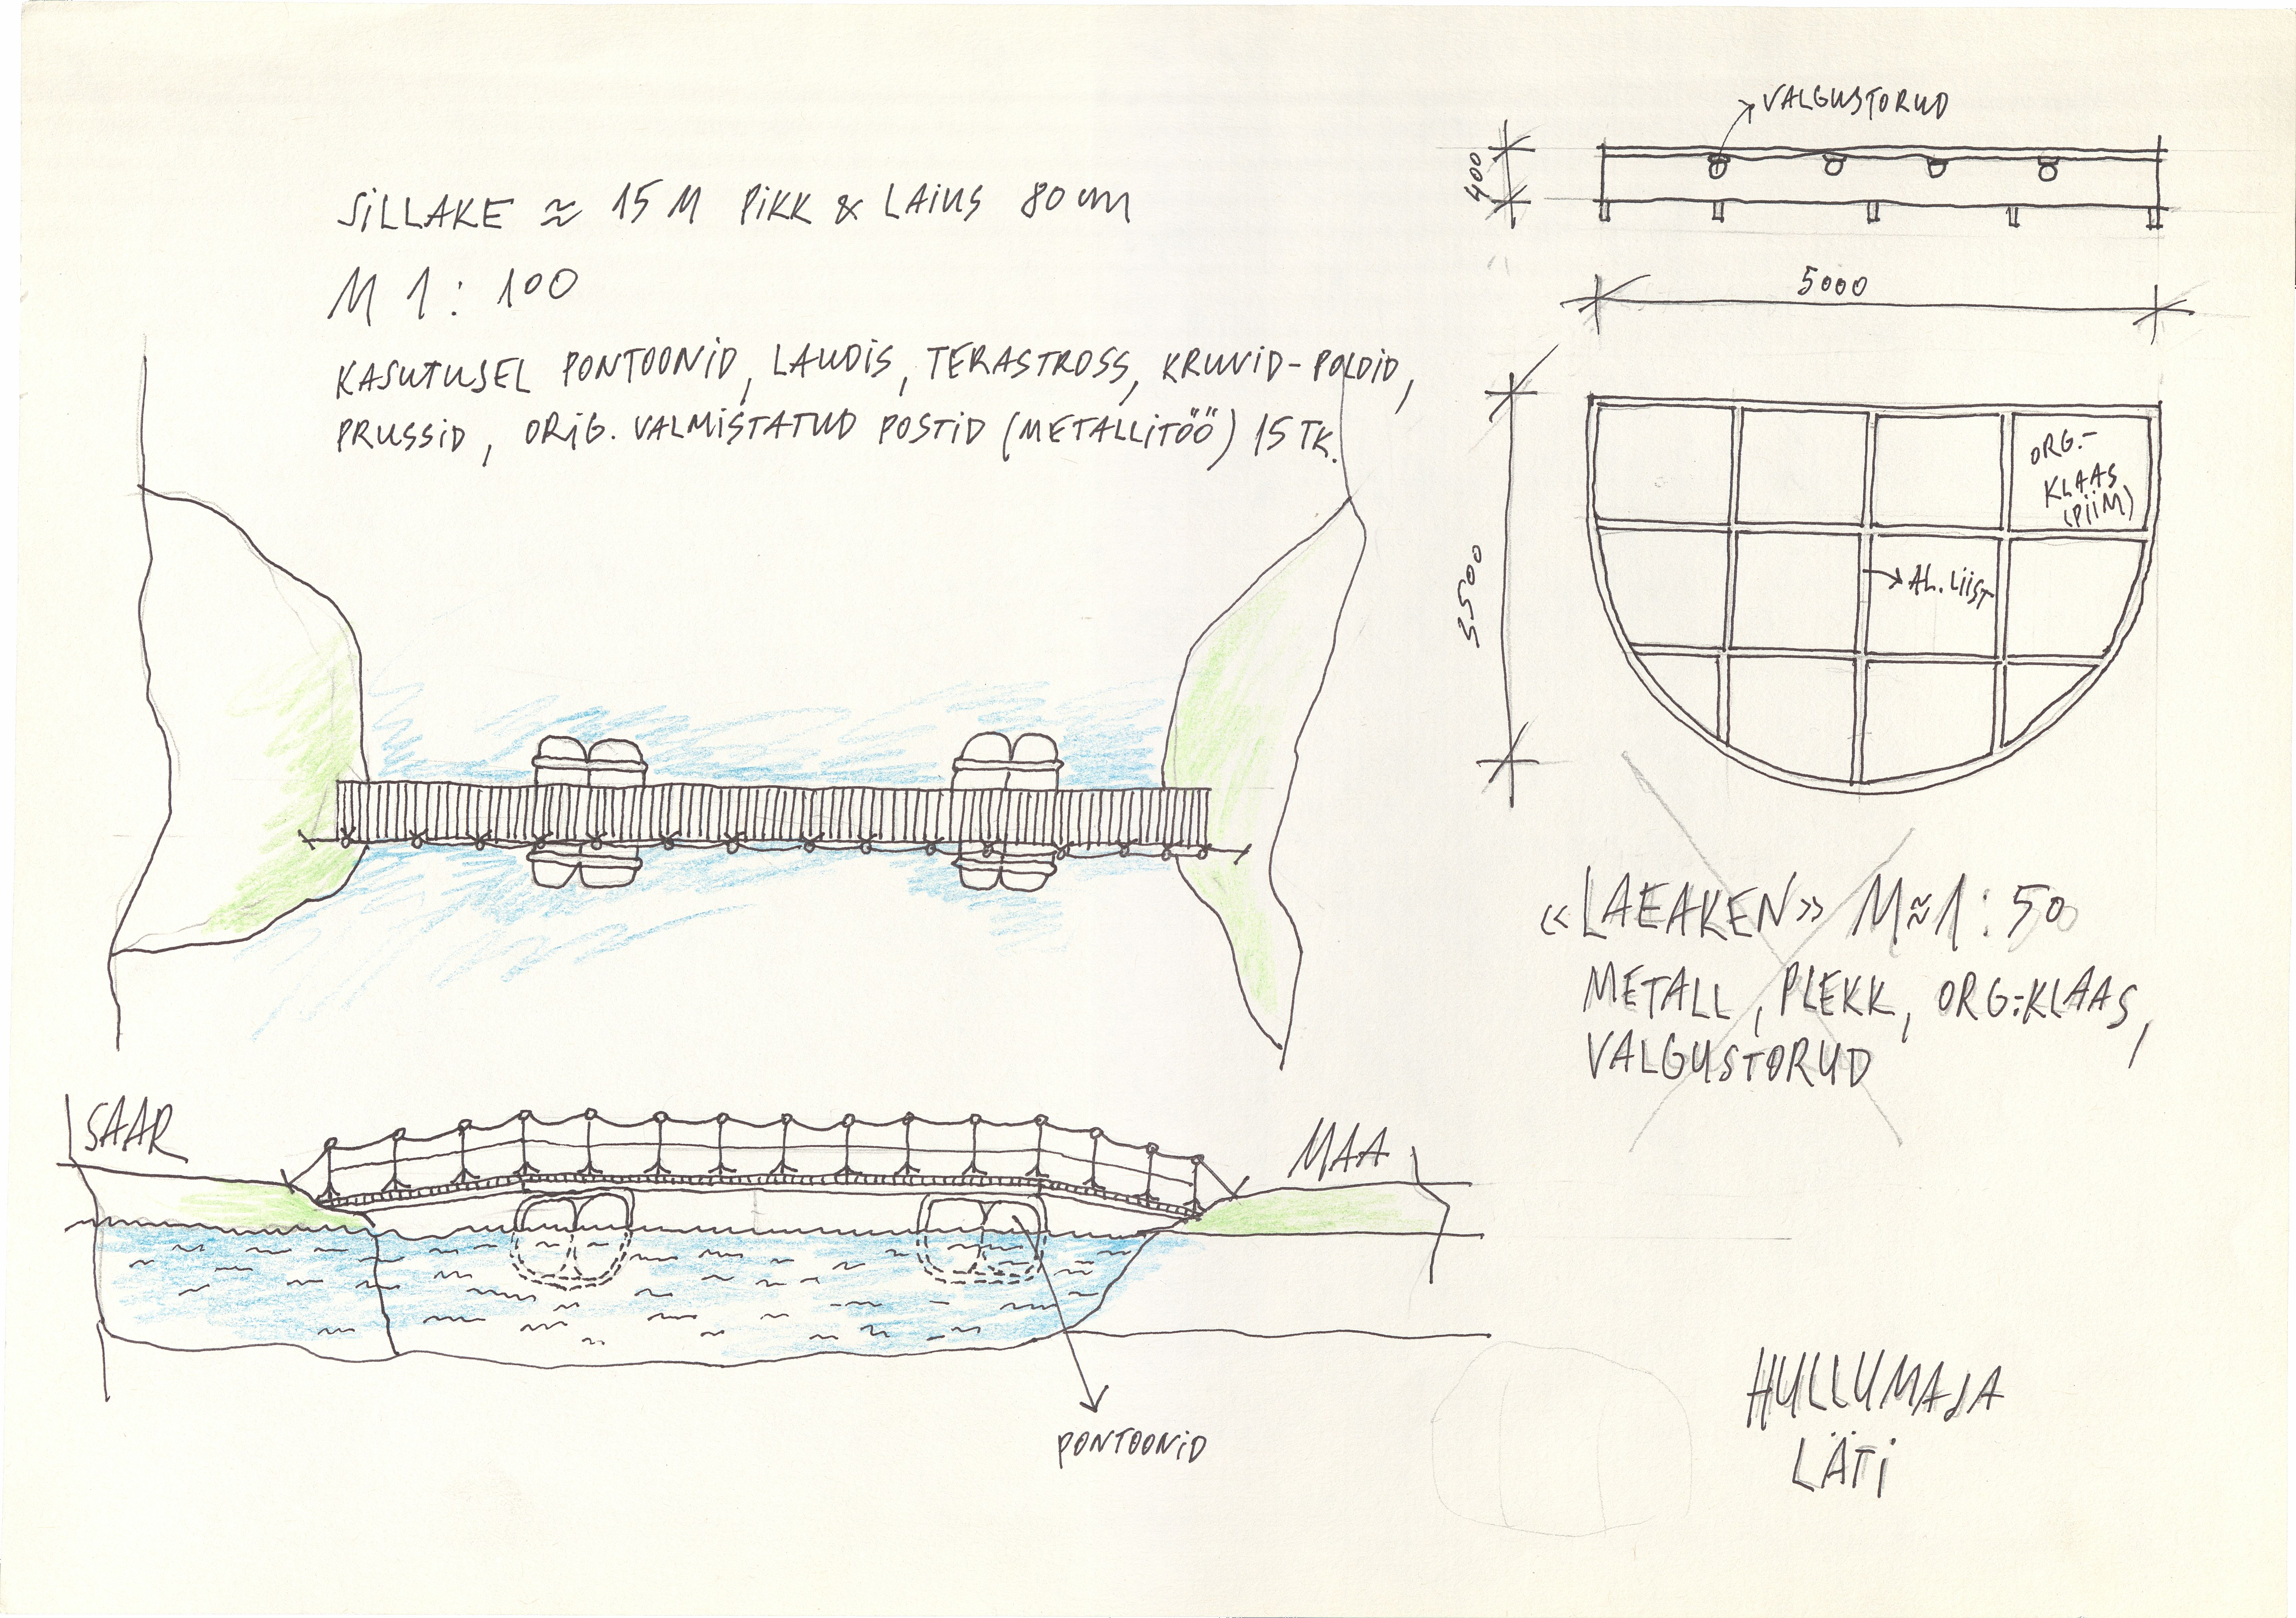 SILLAKE ≈ 15 M PIKK & LAIUS 80 cm
M 1 : 100
KASUTUSEL PONTOONID, LAUDIS, TERASTROSS, KRUVID-POLDID,
PRUSSID, ORIG. VALMISTATUD POSTID (METALLITÖÖ) 15 TK.
VALGUSTORUD
400
5000
3500
ORG.-
KLAAS
(PIIM)
AL. LIIST
«LAEAKEN» M≈1:50
METALL, PLEKK, ORG.-KLAAS,
VALGUSTORUD
SAAR
MAA
PONTOONID
HULLUMAJA
LÄTI